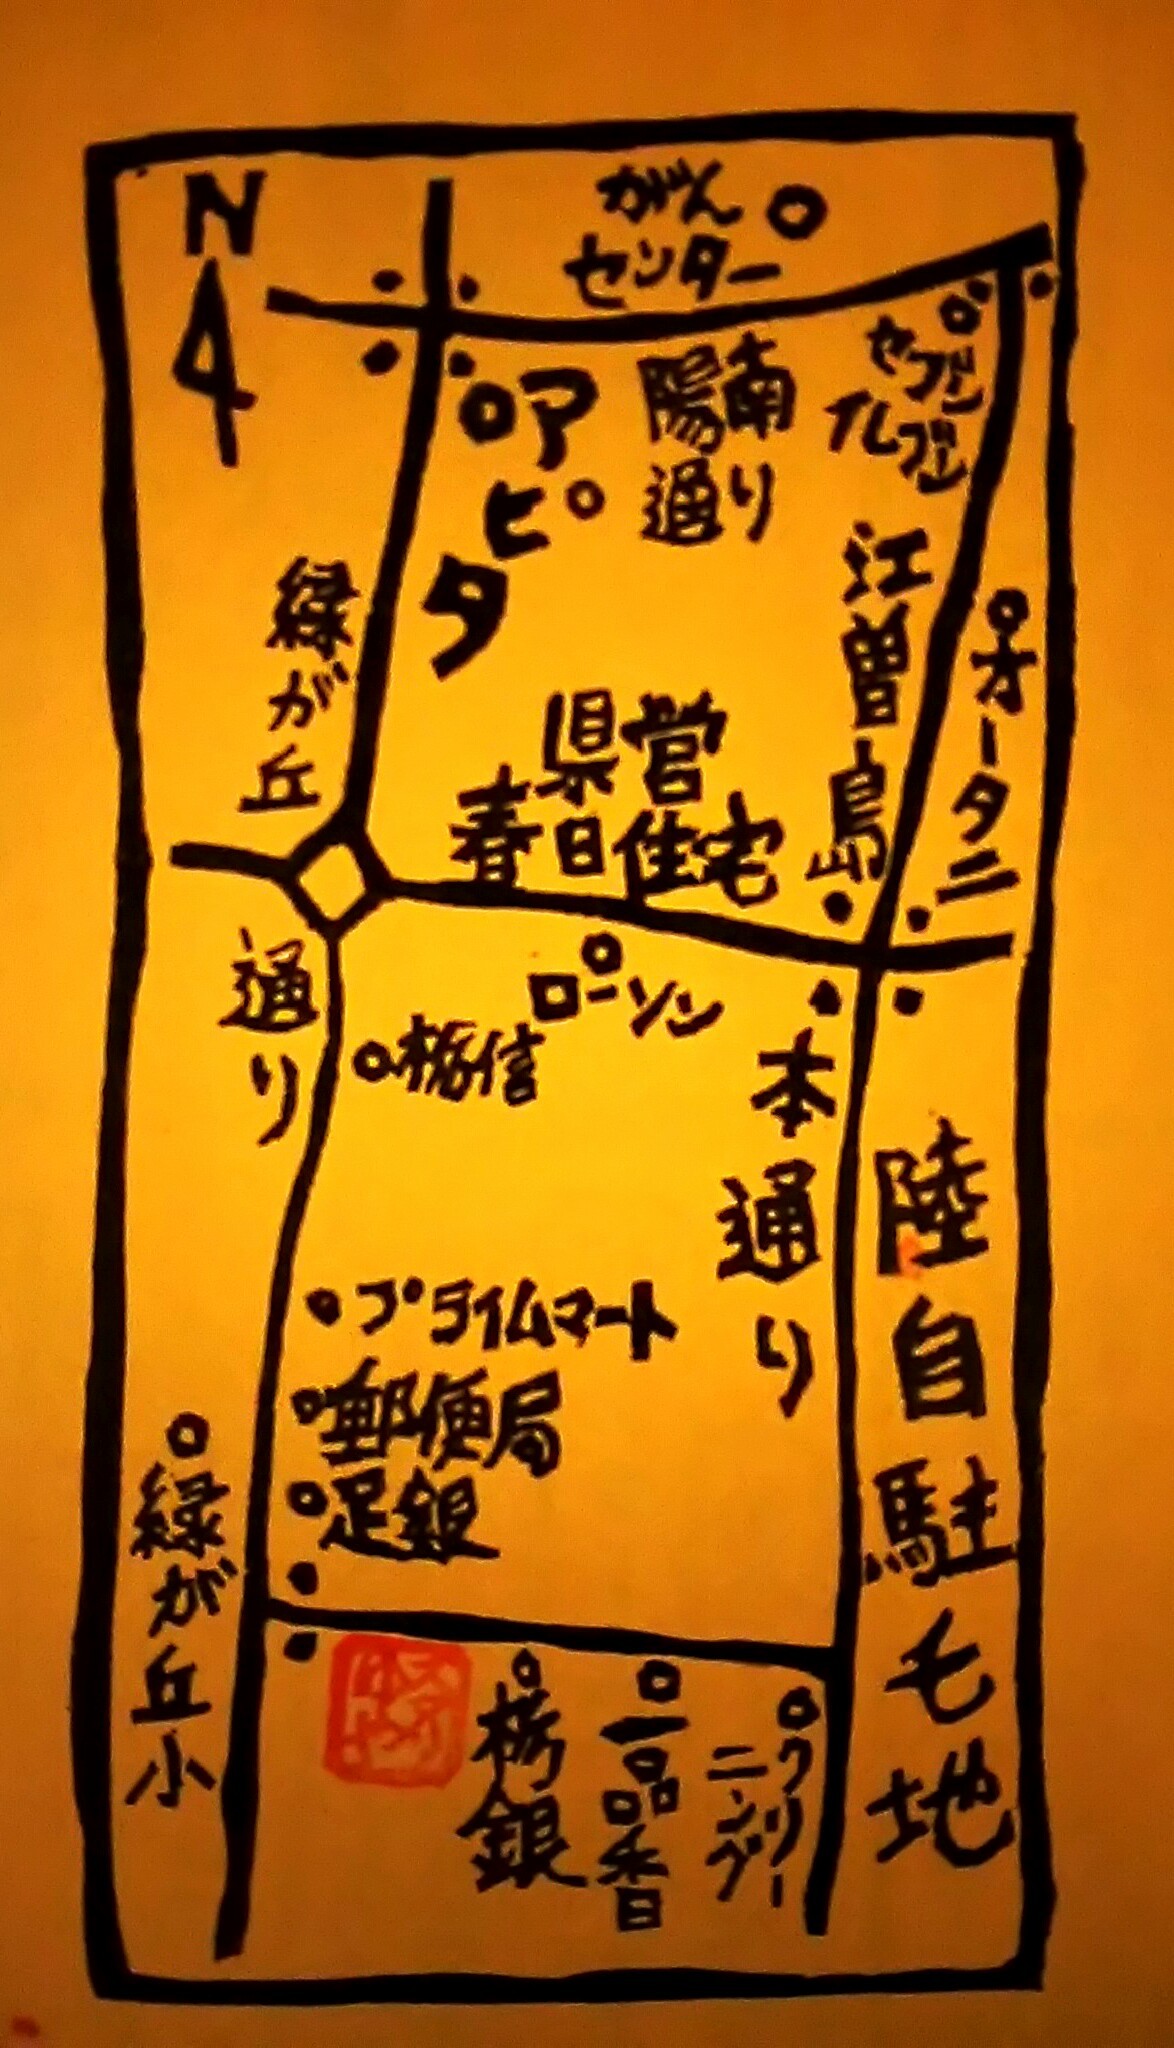 N
がん
センター
アピタ
陽南
通り
セブン
イレブン
緑が丘
通り
江曽島
本通り
オータニ
県営
春日住宅
ローソン
栃信
プライムマート
郵便局
足銀
陸自駐屯地
緑が丘小
栃銀
一品香
クリー
ニング